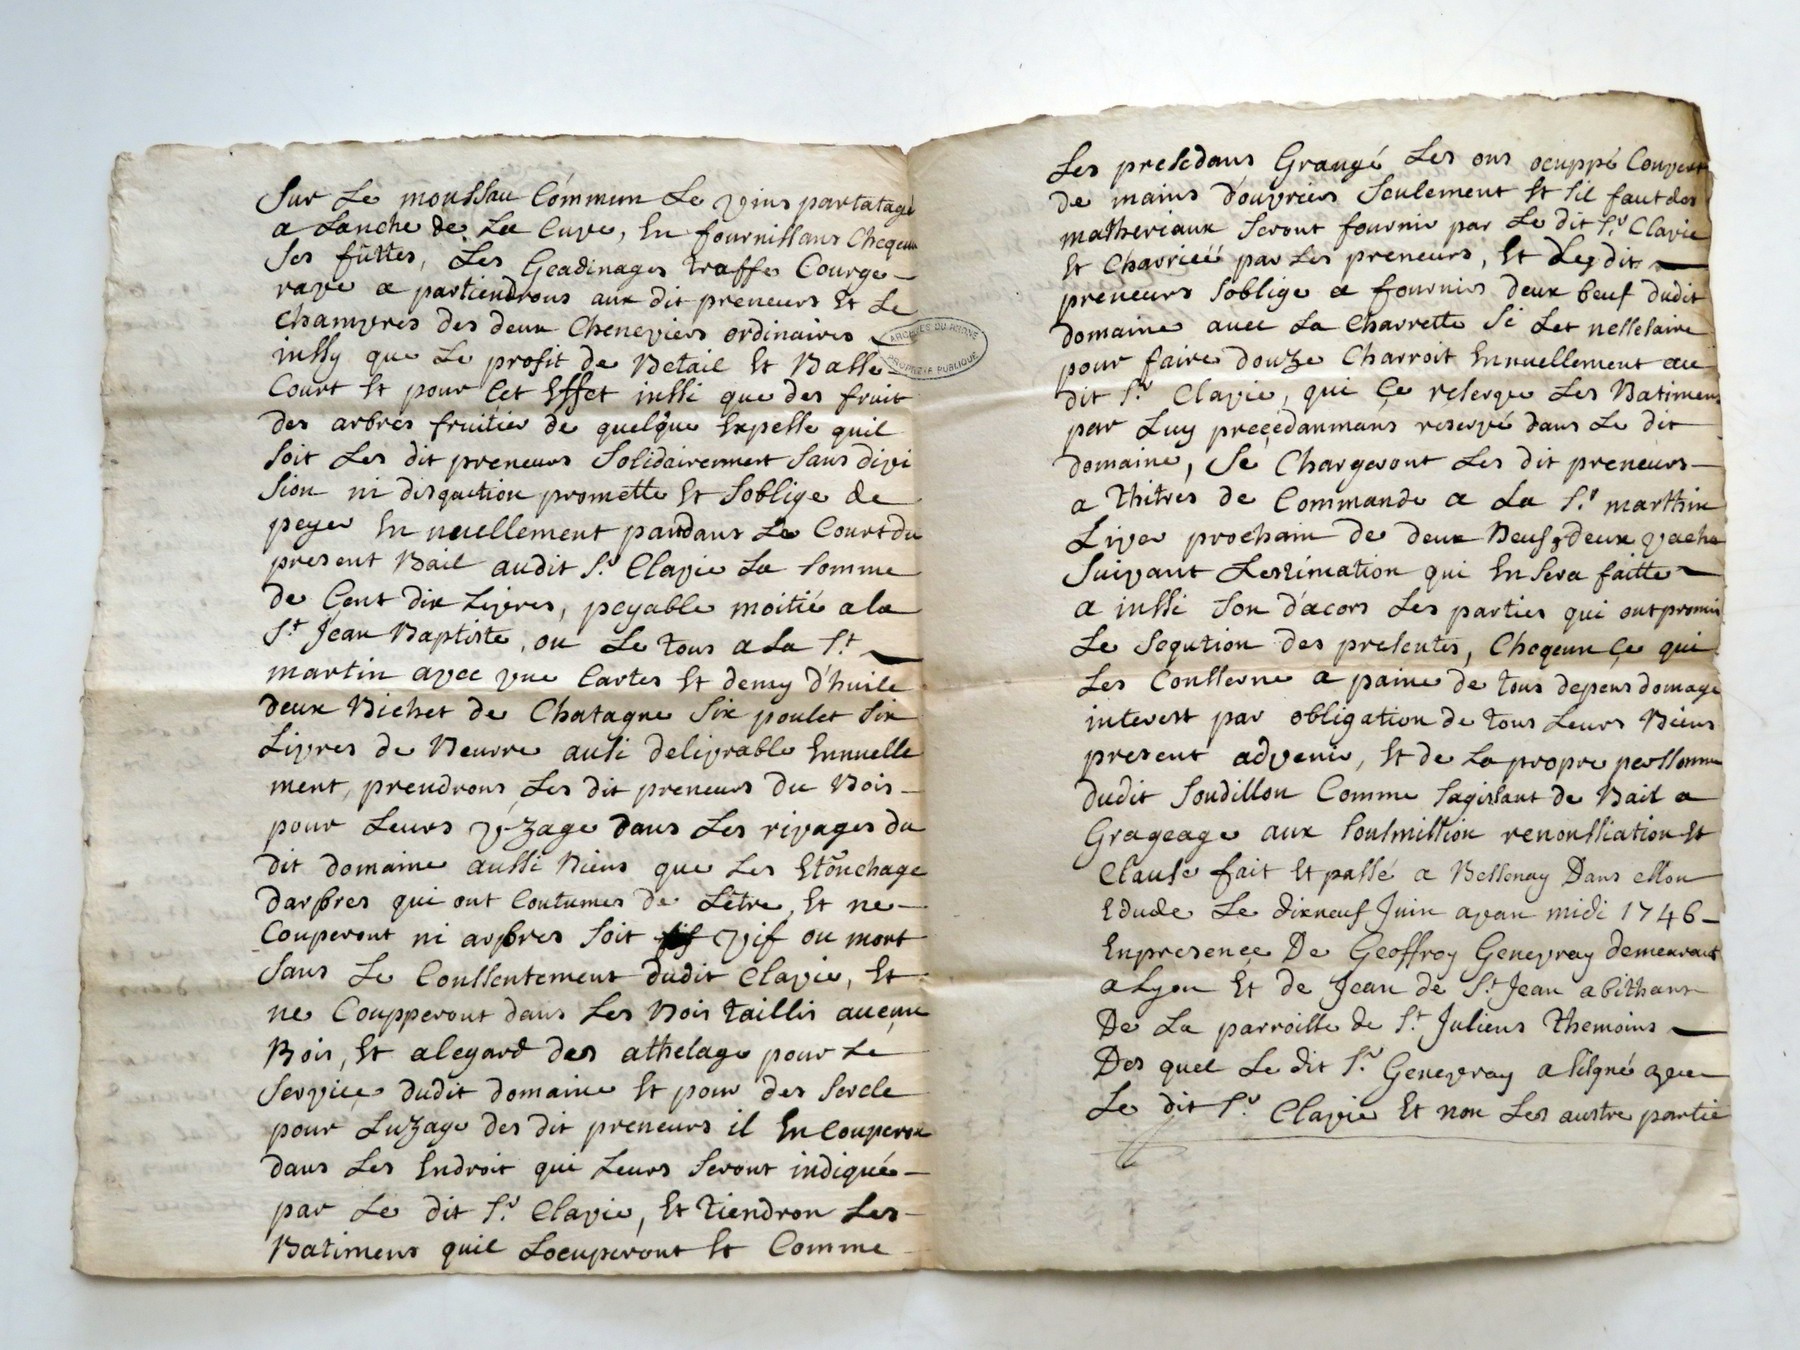 Sur Le moussau Commun Le vins partatagé
a Lanche de La Cuve, En fournissans Cheqeun
Ses fûttes, Les Geadinages traffes Courge
rave a partiendrons aux dit preneurs Et Le
Champres des deux Cheneviers ordinaires
inssy que Le profit de Betail Et Basse
Court Et pour Cet Effet inssi que des fruit
des arbres fruitier de quelque Expesse quil
Soit Les dit preneurs Solidairement Sans divi
sion ni disqution promette Et Soblige de
peyer En nuellement pandans Le Court du
present Bail audit Sr. Clavie La Somme
de Cent dix Livres, peyable moitié a la
St. Jean Baptiste, ou Le tous a La St.
martin avec vne Cartes Et demy d'huile
deux Bichet de Chatagne Six poulet Six
Livres de Beurre ausi delivrable Ennuelle
ment, prendrons Les dit preneurs du Bois
pour Leurs vzage dans Les rivages du
dit domaine aussi Biens que Les Etouchage
darbres qui ont Coutumes de Letre, Et ne
Couperont ni arbres Soit vif ou mort
Sans Le Conssentement dudit Clavie, Et
ne Coupperont dans Les Bois taillis aucun
Bois, Et alegard des athelage pour Le
Service dudit domaine Et pour des Sercle
pour Luzage des dit preneurs il En Couperon
dans Les Endroit qui Leurs Seront indiqué
par Le dit Sr. Clavie, Et tiendron Les
Batimens quil Locuperont Et Comme
ARCHIVES DU RHÔNE
PROPRIÉTÉ PUBLIQUE
Les presedans Grangé Les ons ocuppé Couvert
de mains d'ouvriers Seulement Et Sil faut des
matheriaux Seront fournir par Le dit Sr. Clavie
Et Charriéé par Les preneurs, Et Les dit
preneurs Soblige a fournir deux beuf dudit
domaine avec La Charrette Si Let nessesaire
pour faire douze Charroit Ennuellement au
dit Sr. Clavie, qui Ce reserve Les Batimens
par Luy precedanmans reservé dans Le dit
domaine, Se Chargeront Les dit preneurs
a thitres de Commande a La St. marthin
Liver prochain de deux Beuf, deux vache
Suivant Lestimation qui En Sera faitte
a inssi Son d'acors Les parties qui ont promis
Le Seqution des presentes, Cheqeun Ce qui
Les Consserne a paine de tous depens domage
interest par obligation de tous Leurs Biens
present advenir, Et de La propre perssonne
dudit Soudillon Comme Sagissant de Bail a
Grageage aux Soulmission renonssiation Et
Clause fait Et passé a Bessenay Dans Mon
Edude Le dixneuf Juin avan midi 1746
En presence De Geoffroy Genevray demeurant
a Lyon Et de Jean de St. Jean abithant
De La parroisse de St. Juliens themoins
Des quel Le dit Sr. Genevray a Signé avec
Le dit Sr. Clavie Et non Les austre partie